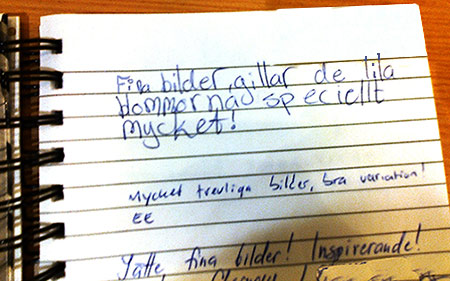 Fina bilder, gillar de lila
blommorna speciellt
mycket!
Mycket trevliga bilder, bra variation!
EE
Jätte fina bilder! Inspirerande!